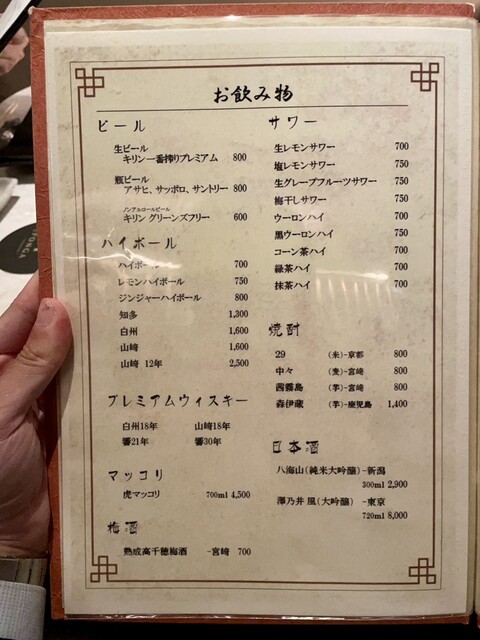 お飲み物
ビール
生ビール
キリン一番搾りプレミアム 800
瓶ビール
アサヒ、サッポロ、サントリー 800
ノンアルコールビール
キリン グリーンズフリー 600
ハイボール
ハイボール 700
レモンハイボール 750
ジンジャーハイボール 800
知多 1,300
白州 1,600
山崎 1,600
山崎 12年 2,500
プレミアムウィスキー
白州18年 山崎18年
響21年 響30年
マッコリ
虎マッコリ 700ml 4,500
梅酒
熟成高千穂梅酒 -宮崎 700
サワー
生レモンサワー 700
塩レモンサワー 750
生グレープフルーツサワー 750
梅干しサワー 750
ウーロンハイ 700
黒ウーロンハイ 750
コーン茶ハイ 700
緑茶ハイ 700
抹茶ハイ 700
焼酎
29 (米)-京都 800
中々 (麦)-宮崎 800
茜霧島 (芋)-宮崎 800
森伊蔵 (芋)-鹿児島 1,400
日本酒
八海山(純米大吟醸)-新潟
300ml 2,900
澤乃井 凰(大吟醸) -東京
720ml 8,000